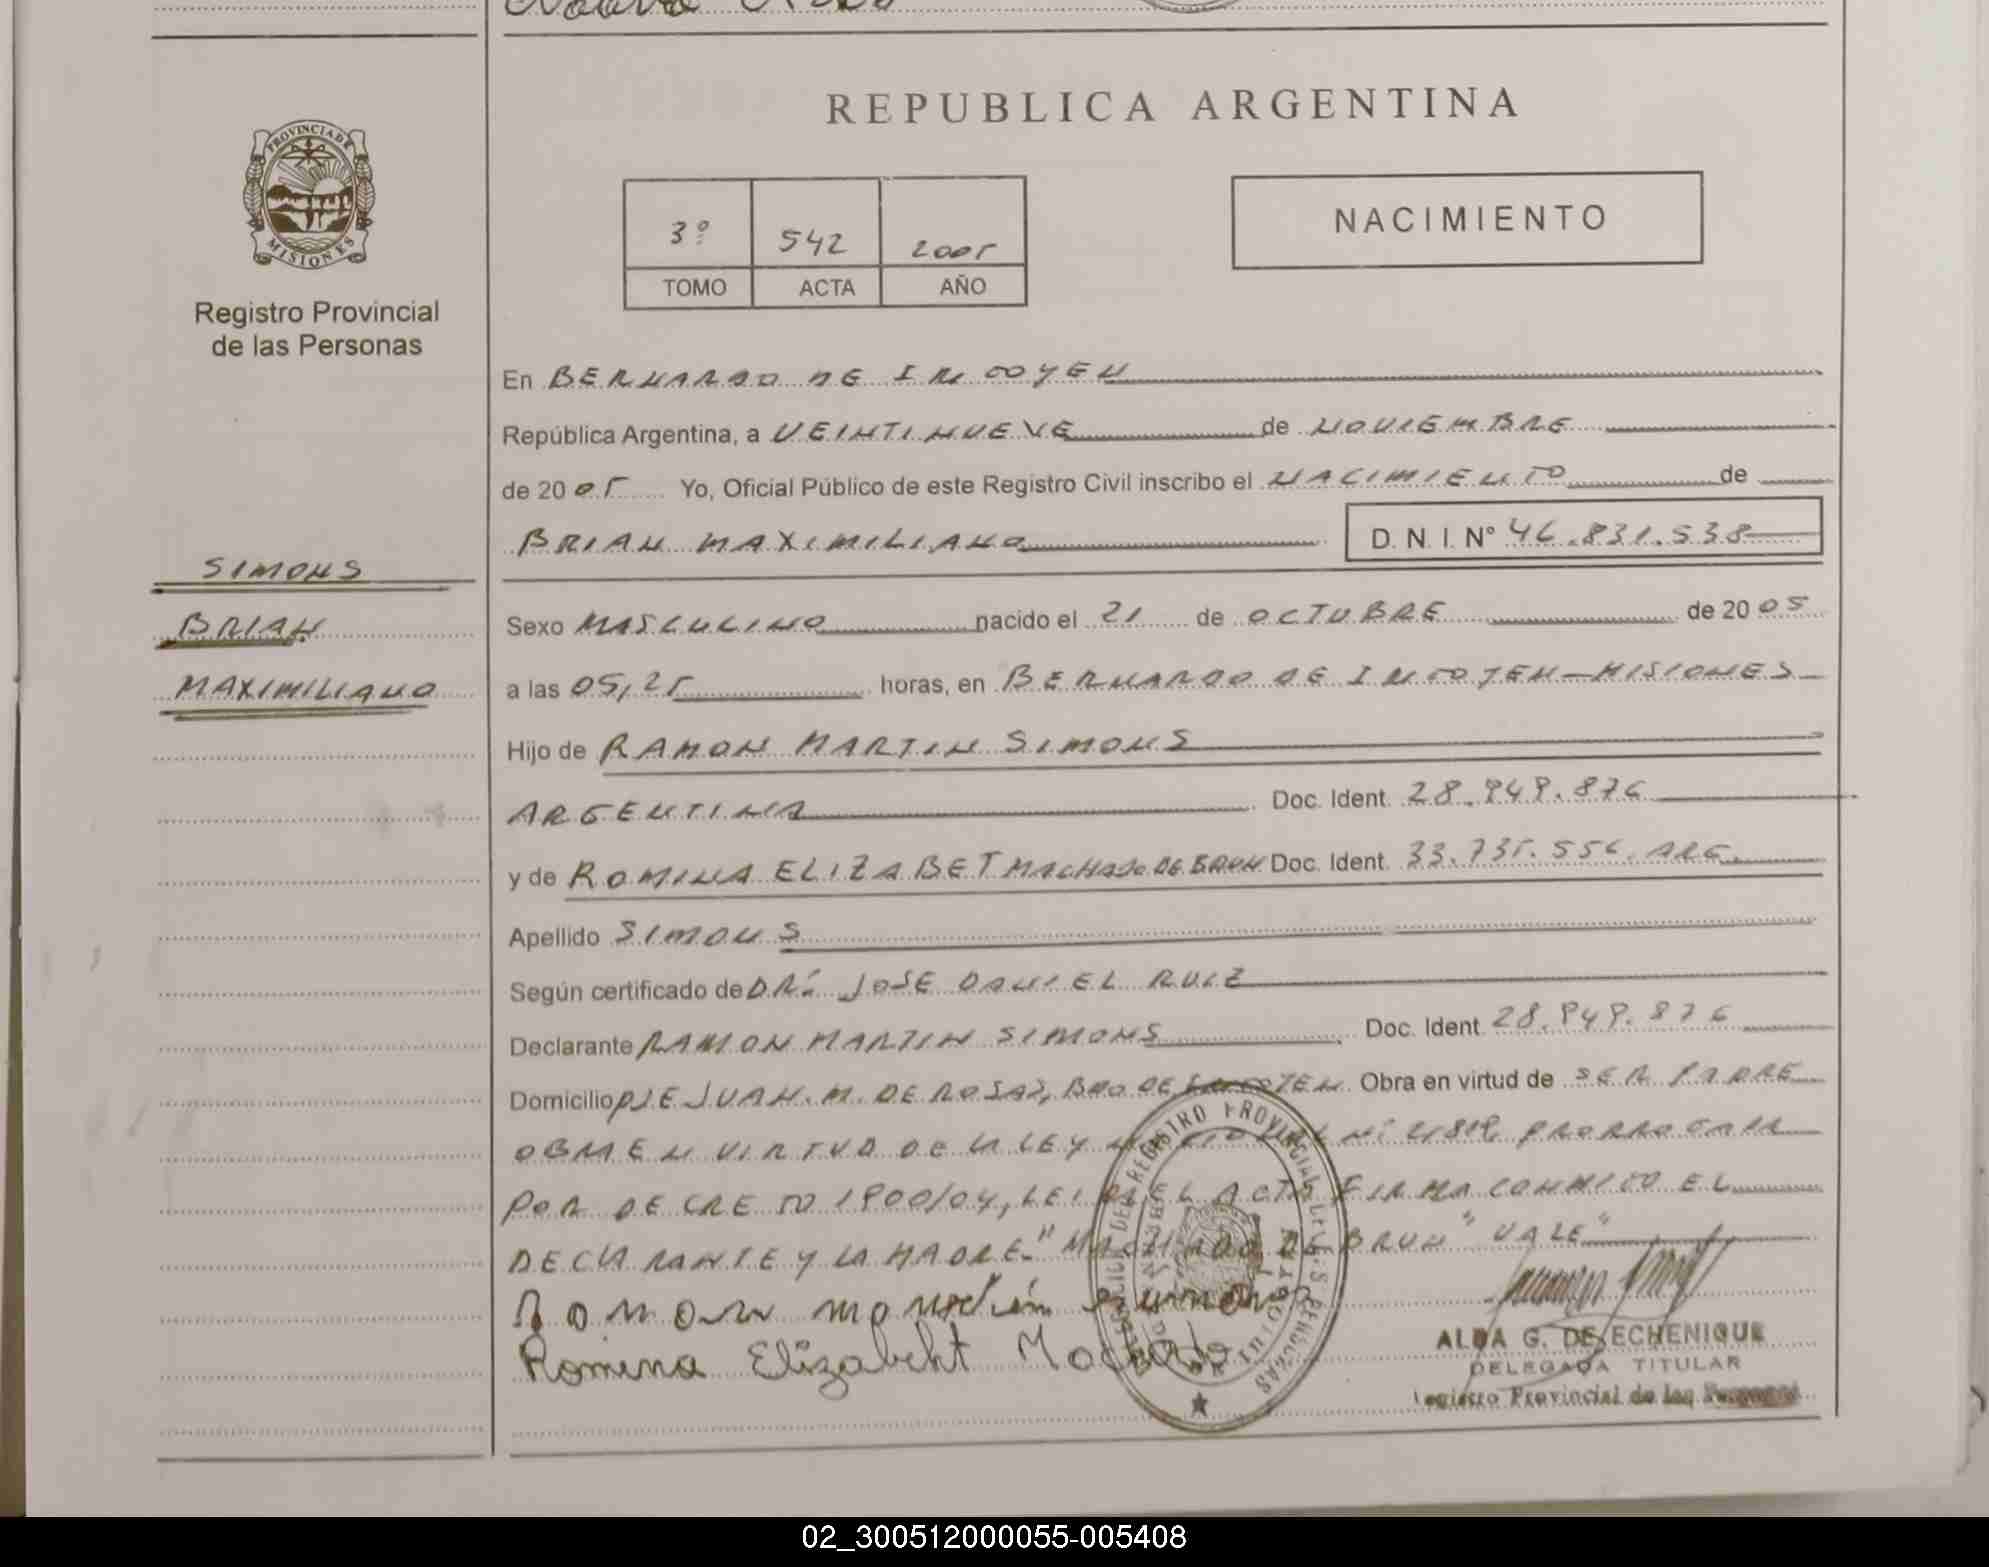 REPUBLICA ARGENTINA
PROVINCIA DE MISIONES
Registro Provincial
de las Personas
3º 542 2005
TOMO ACTA AÑO
NACIMIENTO
En BERNARDO DE IRIGOYEN
República Argentina, a VEINTINUEVE de NOVIEMBRE
de 2005 Yo, Oficial Público de este Registro Civil inscribo el NACIMIENTO de
BRIAN MAXIMILIANO D.N.I. Nº 46.831.538
SIMONS
BRIAN
MAXIMILIANO
Sexo MASCULINO nacido el 21 de OCTUBRE de 2005
a las 05,25 horas, en BERNARDO DE IRIGOYEN-MISIONES
Hijo de RAMON MARTIN SIMONS
ARGENTINA Doc. Ident. 28.949.876
y de ROMINA ELIZABET MACHADO DE BRUN Doc. Ident. 33.735.556. ARG.
Apellido SIMONS
Según certificado de DR. JOSE DANIEL RUIZ
Declarante RAMON MARTIN SIMONS Doc. Ident. 28.949.876
Domicilio JUAN. M. DE ROSAS, BDO DE IRIGOYEN Obra en virtud de SER PADRE
OBRA EN VIRTUD DE LA LEY Nº
POR DECRETO 1900/04, LEIDA EL ACTA FIRMA CONMIGO EL
DECLARANTE Y LA MADRE-"MACHADO DE BRUN" VALE"
Romina Elizabeht Machado
REGISTRO PROVINCIAL DE LAS PERSONAS
ALBA G. DE ECHENIQUE
DELEGADA TITULAR
Registro Provincial de las Personas
02_300512000055-005408